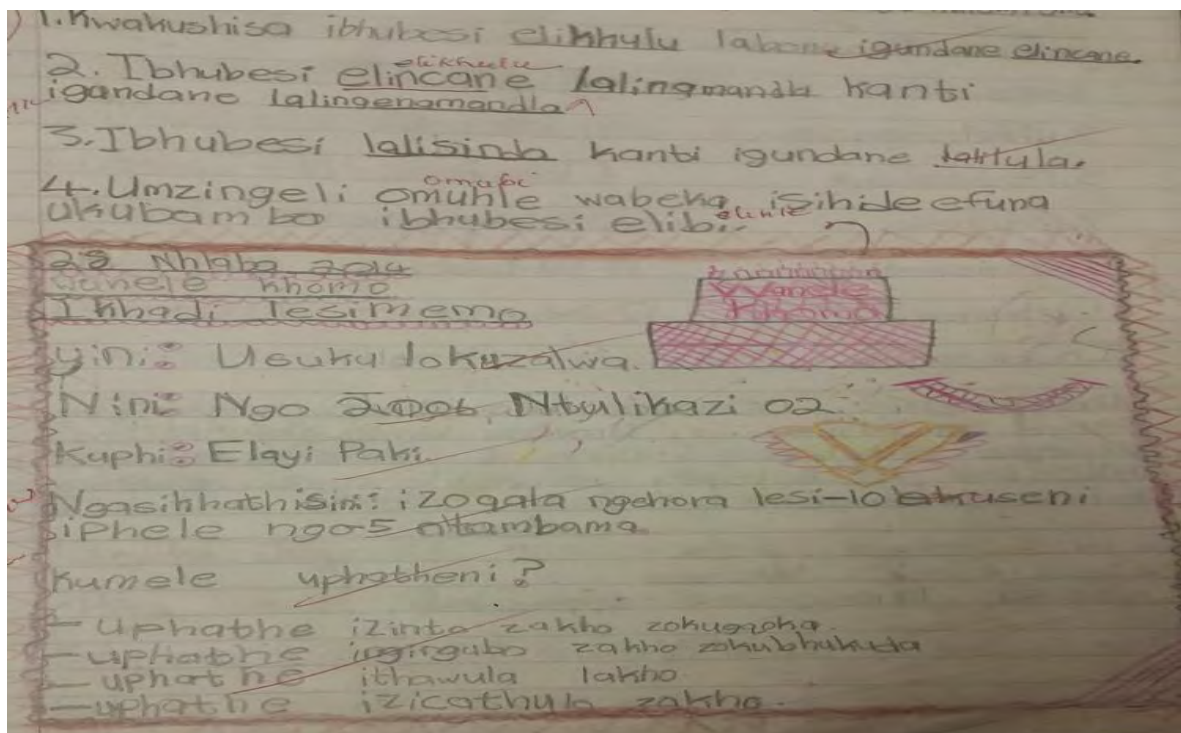 1. Kwakushisa ibhubesi elikhulu labona igundane elincane.
elikhulu
2. Ibhubesi elincane lalingmandla kanti
igandane lalingenamandla
3. Ibhubesi lalisinda kanti igundane lalilula.
omubi
4. Umzingeli omuhle wabeka isihide efuna
ukubamba ibhubesi elibi.
elihle
28 Nhlaba 2014
Wanele Khomo
Ikhadi lesimemo
Wanele
Khomo
Yini: Usuku lokuzalwa.
Nini: Ngo Ntulikazi 02
Kuphi: Elayi Paki.
Ngasikhathisini: izogala ngehora lesi-10 ekuseni
iphele ngo-5 ntambama.
Kumele uphatheni?
- Uphathe izinto zakho zokugqoka.
- uphathe zakho zokubhukuda
- uphathe ithawula lakho.
- uphathe izicathulo zakho.